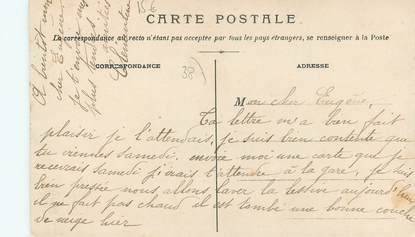 CARTE POSTALE.
La correspondance au recto n'étant pas acceptée par tous les pays étrangers, se renseigner à la Poste
CORRESPONDANCE
ADRESSE
38)
Mon cher Eugène,
Ta lettre m'a bien fait
plaisir je l'attendais, je suis bien contente que
tu viennes samedi. envoie moi une carte que je
recevrais samedi j'irais t'attendre à la gare, je suis
bien pressée nous allons laver la lessive aujourd'hui
il ne fait pas chaud il est tombé une bonne couche
de neige hier
A bientôt mon
cher Eugène
je t'envoie mes
plus tendres
Clémentine